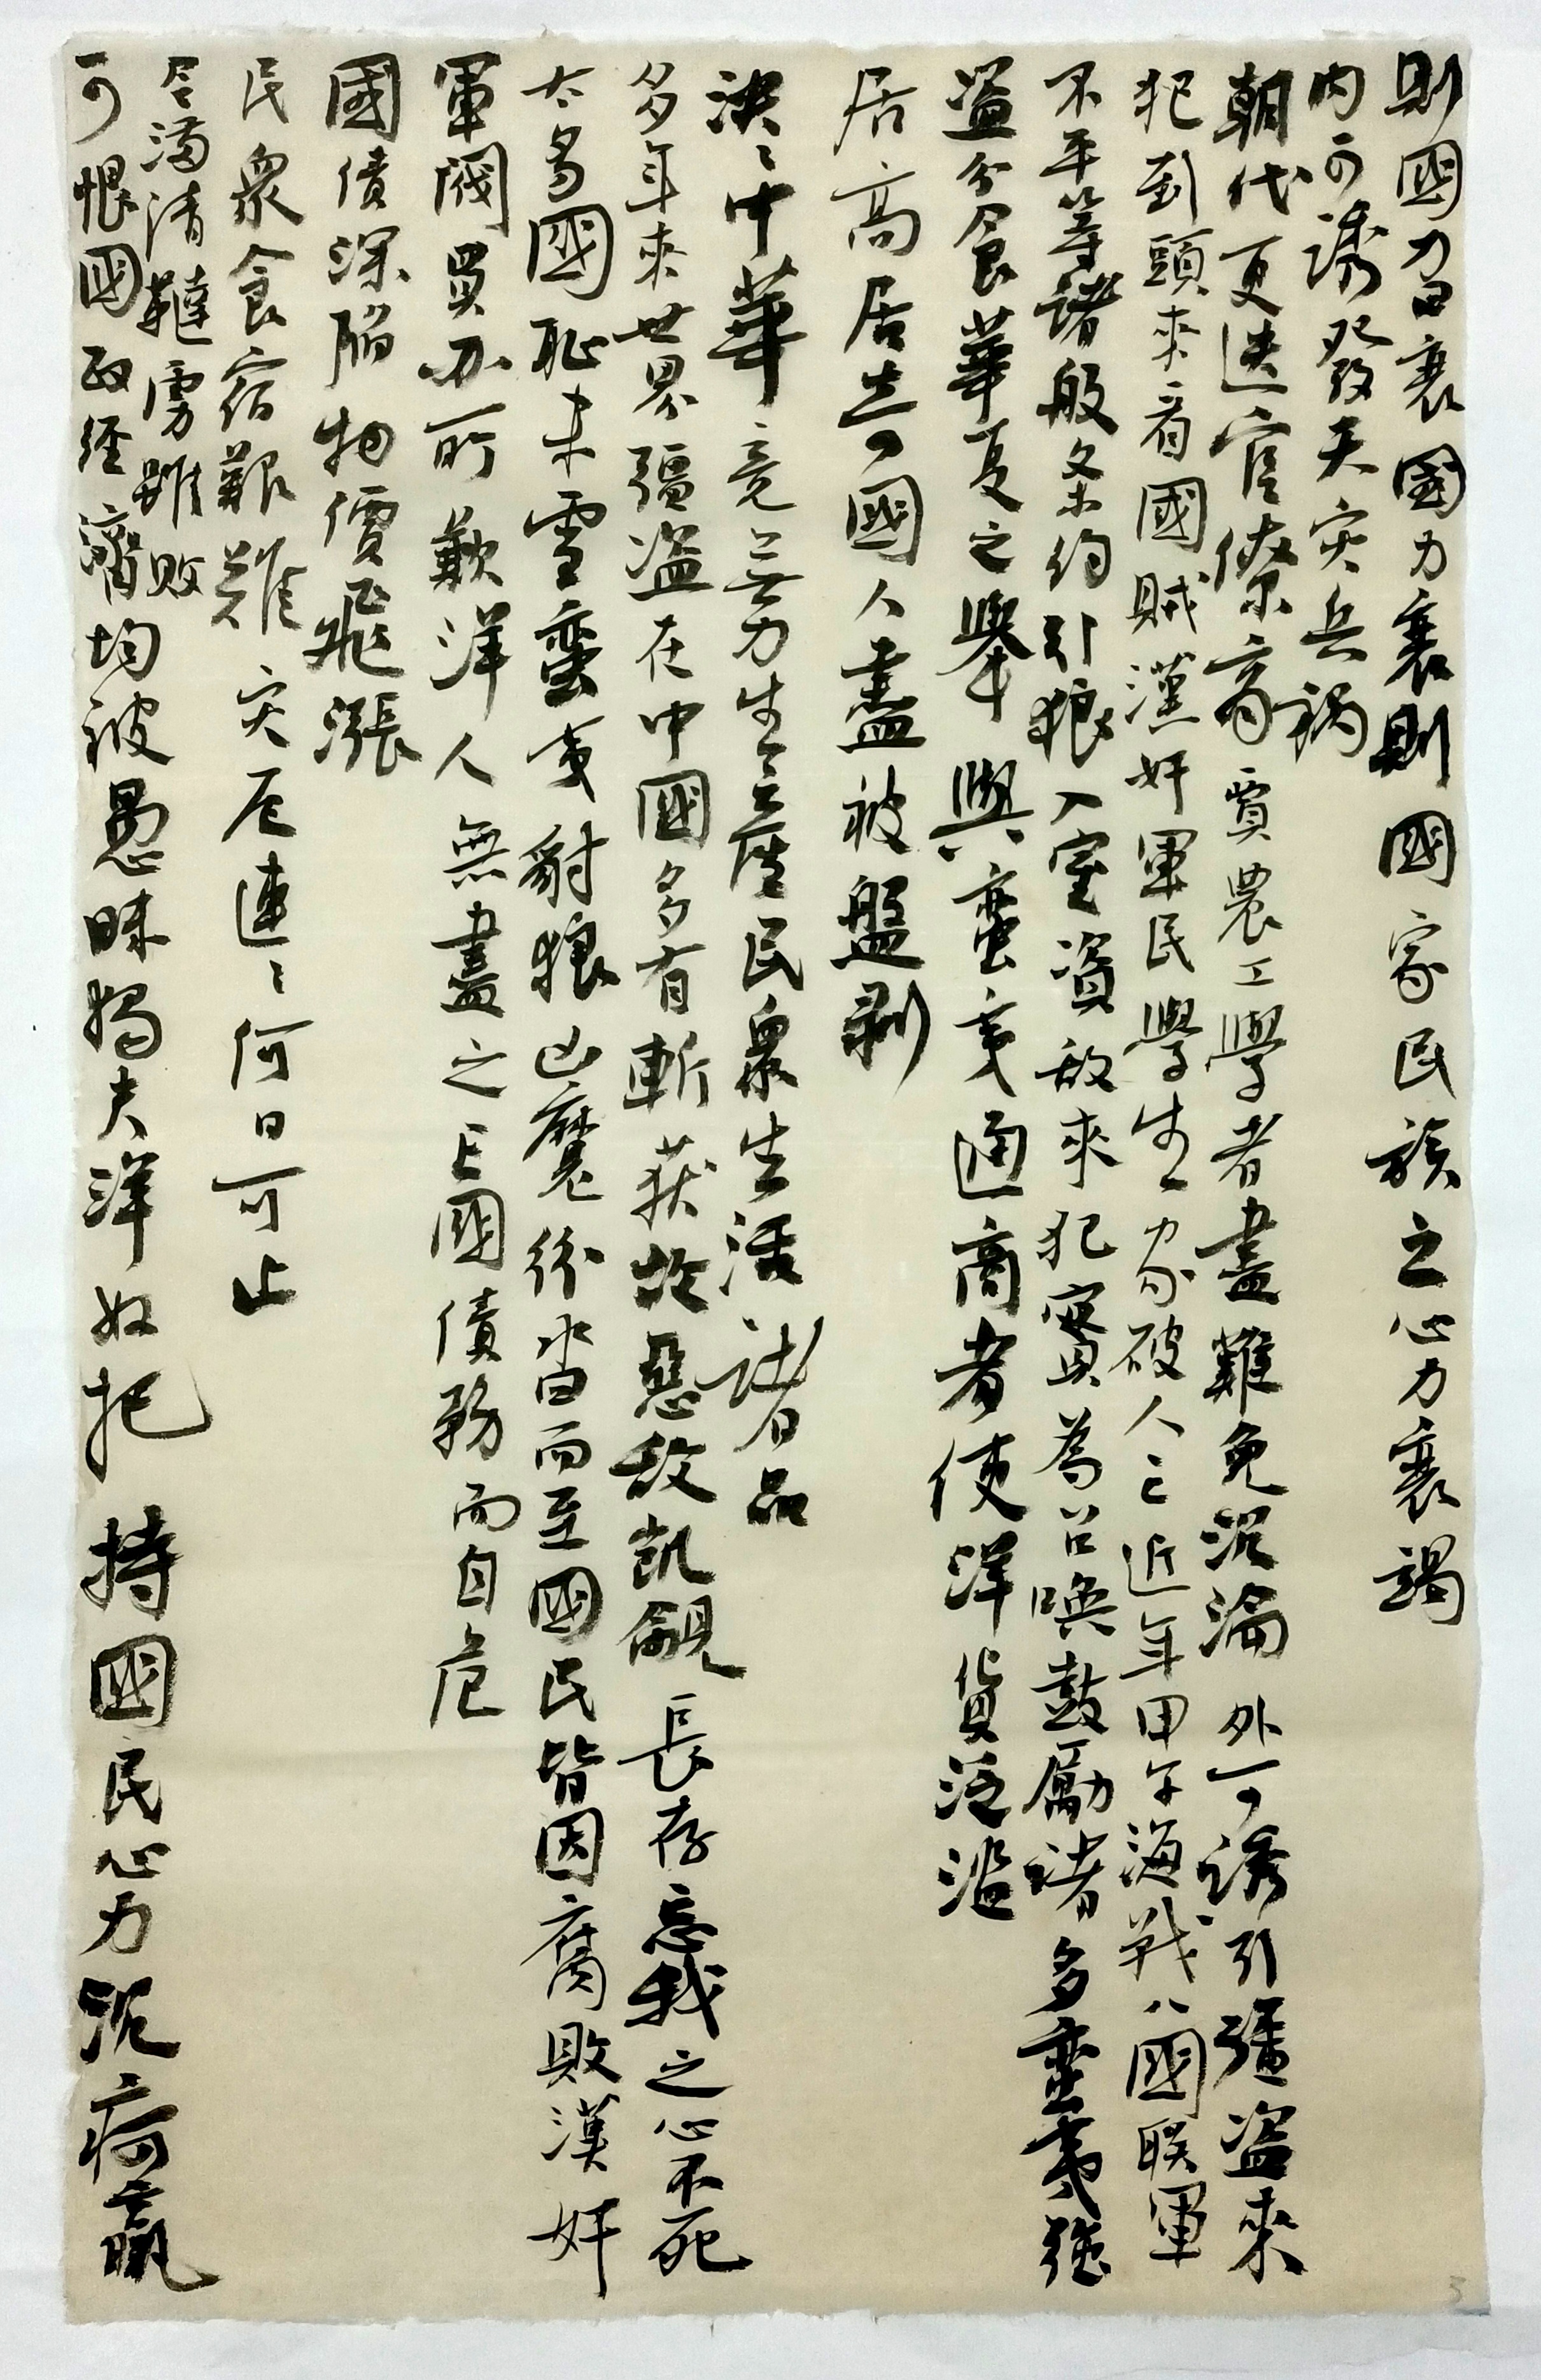 則國力日衰國力衰則國家民族之心力衰竭
內可誘發天灾兵禍
朝代更迭官僚商賈農工學者盡難免沉淪外可誘引強盜來
犯到頭來看國賊漢奸軍民學生家破人亡近年甲午海戰八國联軍
不平等諸般条约引狼入室資敵來犯實為召喚鼓勵諸多蛮夷强
盗分食華夏之舉與蛮夷通商者使洋貨泛滥
居高居士國人盡被盤剥
泱泱中華竟無力生產民衆生活諸品
多年來世界强盗在中國多有斬获故惡敌凯覦長存忘我之心不死
太多國恥未雪蛮夷豺狼凶魔纷沓而至國民皆因腐敗漢奸
軍閥買办所欺洋人無盡之亡國債務而自危
國债深陷物價飛漲
民衆食宿艱難灾厄連連何日可止
今满清韃虜雖败
可恨國政經濟均被愚昧獨夫洋奴把持國民心力沉疴羸